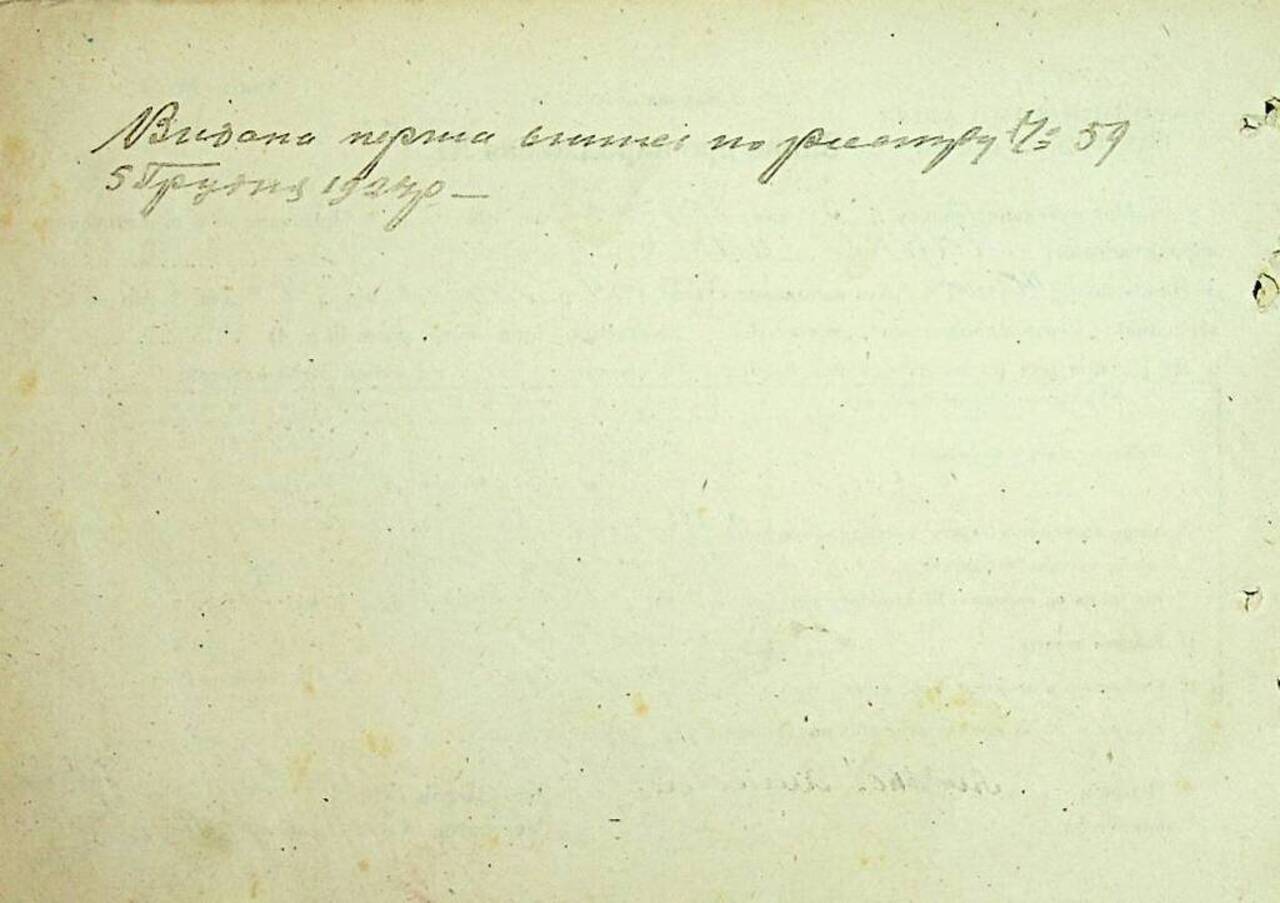 Видана перша випись по реєстру № 59
5 Грудня 1924р —